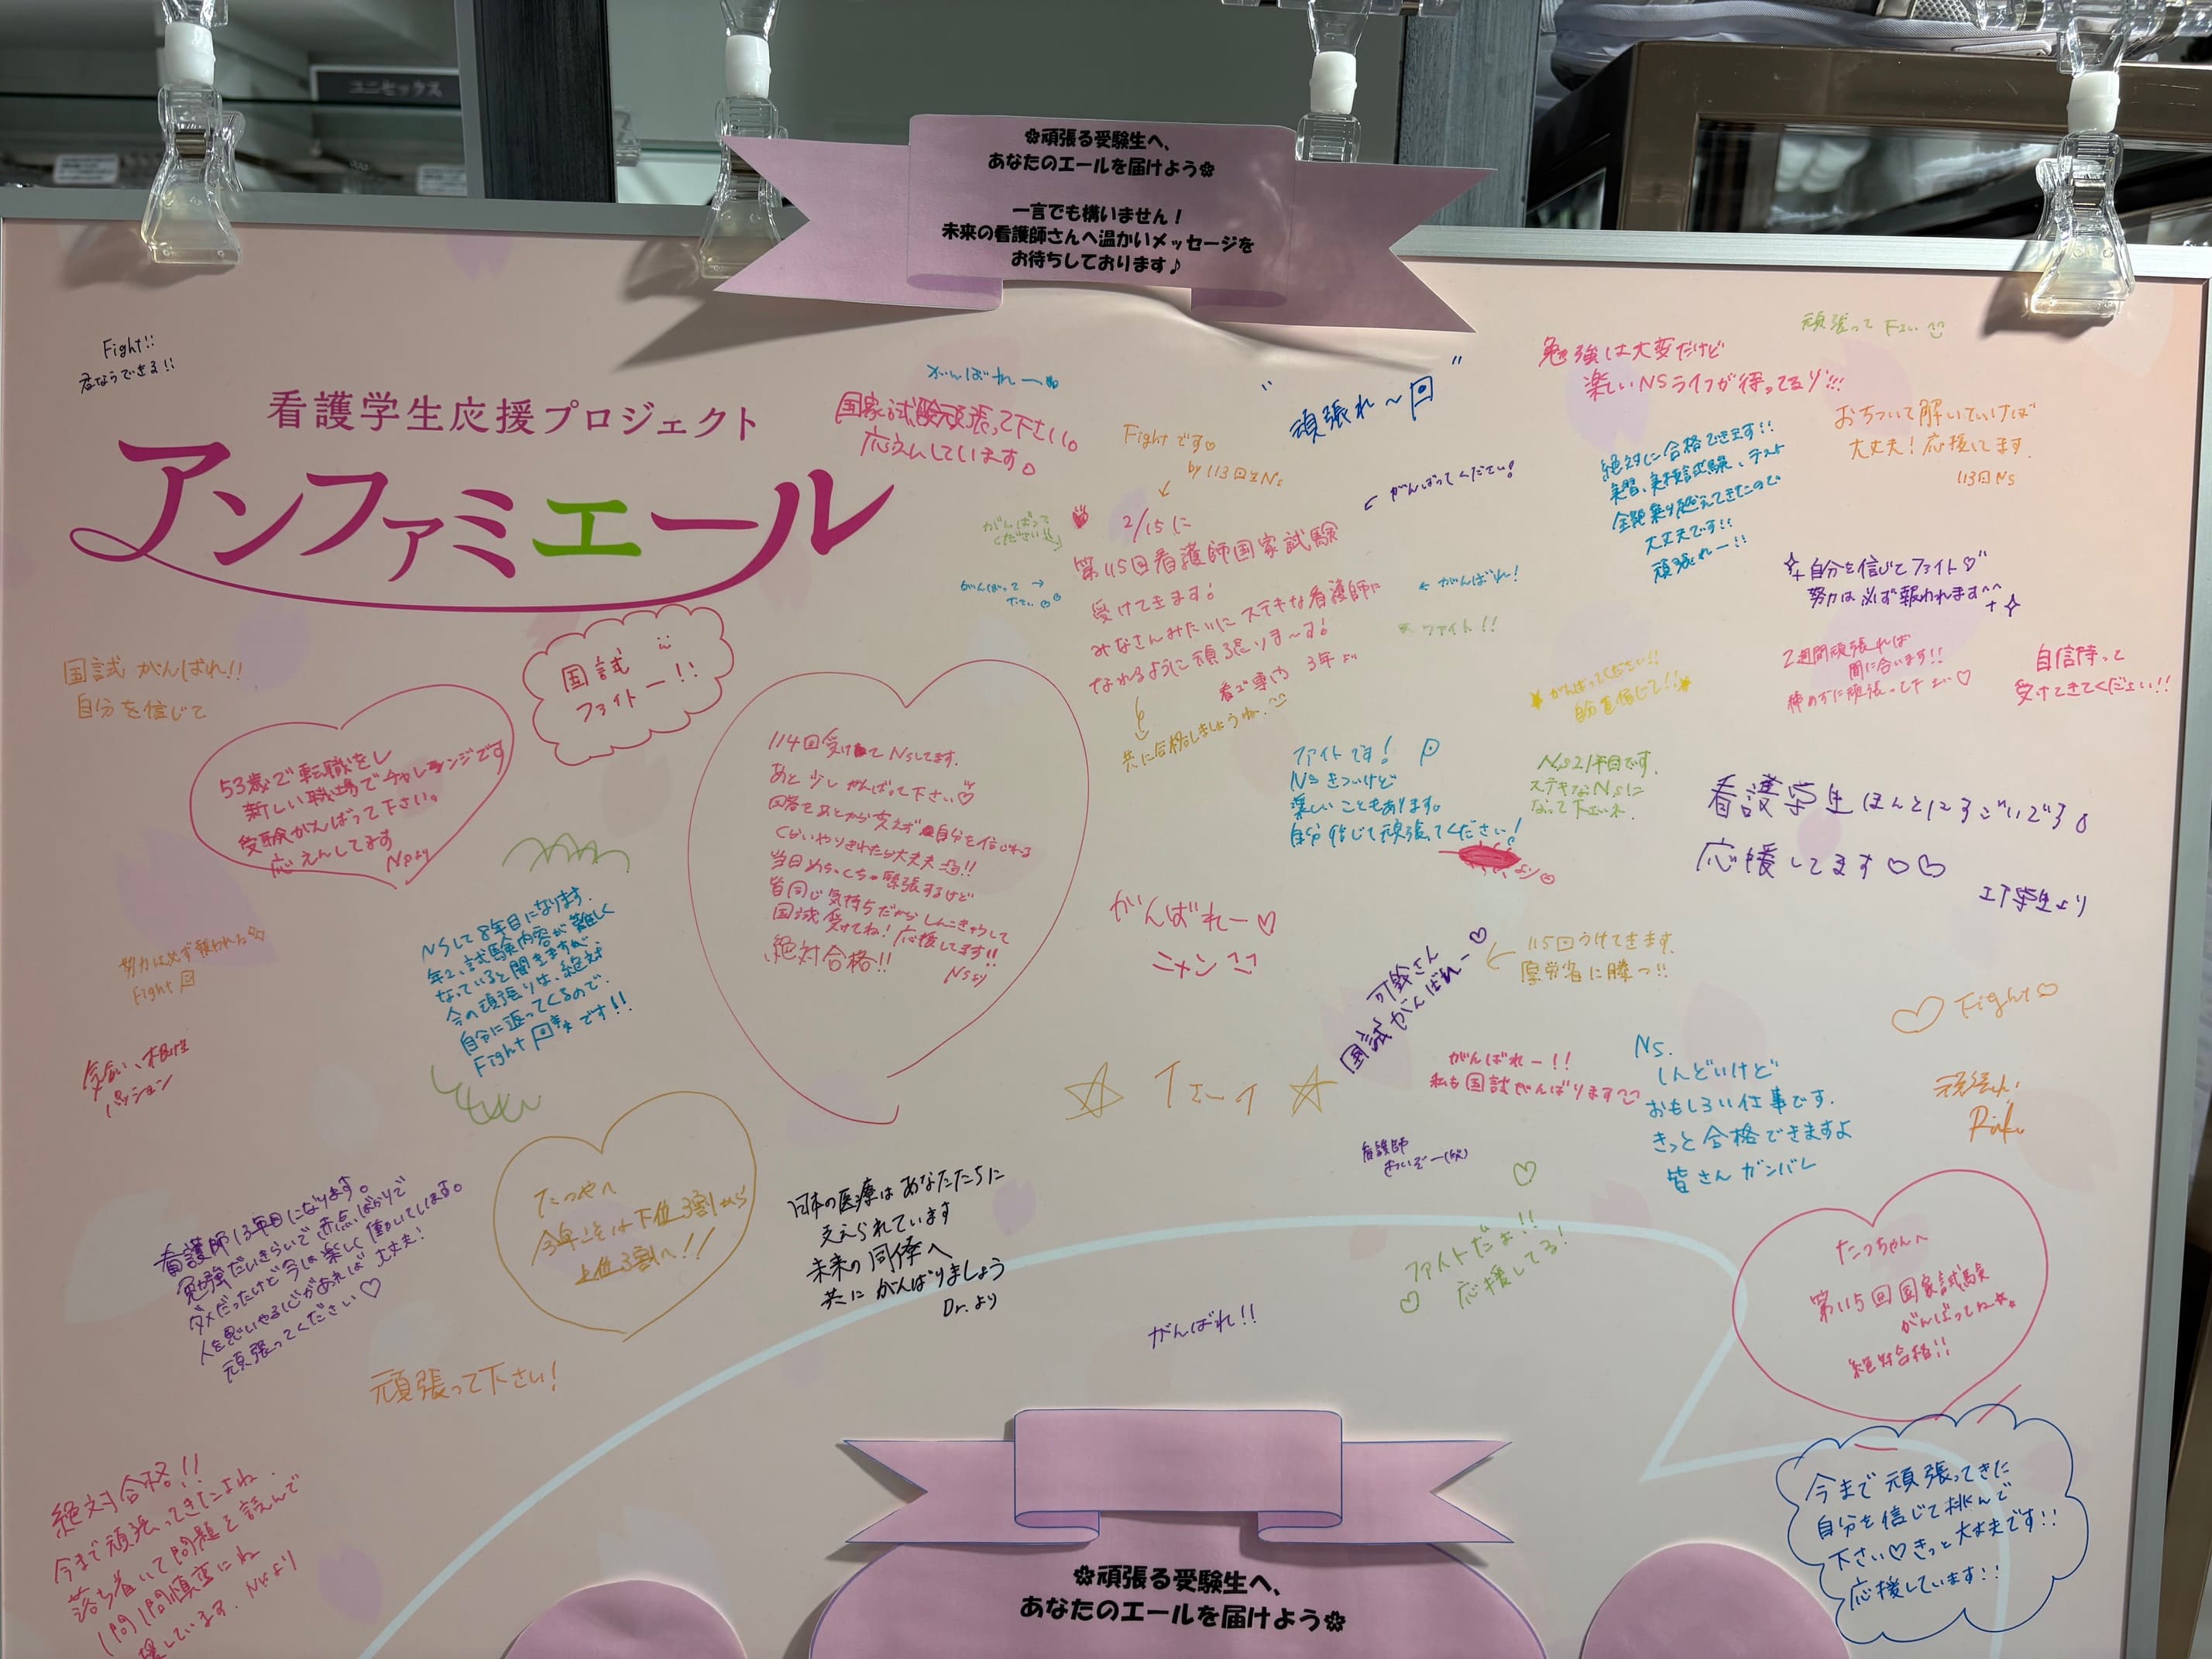 ユニセックス
✿頑張る受験生へ、
あなたのエールを届けよう✿
一言でも構いません！
未来の看護師さんへ温かいメッセージを
お待ちしております♪
Fight!!
君ならできる!!
看護学生応援プロジェクト
アンファミエール
がんばれー
国家試験頑張って下さい。
応えんしています。
Fightです♡
by 113回生Ns
"頑張れ〜"
がんばってください!
頑張って下さい
勉強は大変だけど
楽しいNSライフが待ってるゾ!!!
おちついて解いていけば
大丈夫！応援してます
113回Ns
絶対に合格できます!!
実習、実技試験、テスト
全部乗り越えてきたので
大丈夫です!!
頑張れー!!
がんばって
ください!!
がんばって→
下さい
2/15に
第115回看護師国家試験
受けてきます!
みなさんみたいにステキな看護師に
なれるように頑張りま〜す!
看ご専門 3年より
共に合格しましょうね
←がんばれ!
ファイト!!
自分を信じてファイト♡
努力は必ず報われます^^
2週間頑張れば
間に合います!!
諦めずに頑張って下さい♡
自信持って
受けてきてください!!
国試がんばれ!!
自分を信じて
国試
ファイトー!!
がんばってください!!
自分を信じて!!
53歳で転職をし
新しい職場でチャレンジです
受験がんばって下さい。
応えんしてます
Nsより
114回受けてNsしてます。
あと少しがんばって下さい♡
回答をあとから変えず自分を信じれる
くらいやりきれたら大丈夫!!
当日めちゃくちゃ緊張するけど
皆同じ気持ちだからしんこきゅうして
国試受けてね!応援してます!!
絶対合格!!
Nsより
ファイトです!
Nsきついけど
楽しいこともあります。
自分信じて頑張ってください!
より
Ns21年目です。
ステキなNsに
なって下さいネ.
看護学生ほんとにすごいです。
応援してます♡♡
工学生より
NSして8年目になります.
年々、試験内容が難しく
なっていると聞きますが
今の頑張りは、絶対
自分に返ってくるので、
Fightです!!
努力は必ず報われる
Fight
がんばれー♡
ニャン
可鈴さん
国試がんばれー♡
115回うけてきます.
厚労省に勝つ!!
♡Fight♡
気合い、根性
パッション
☆イェーイ☆
がんばれー!!
私も国試がんばります
Ns.
しんどいけど
おもしろい仕事です.
きっと合格できますよ
皆さんガンバレ
頑張れ!
Riku
看護師
看護師13年目になります。
勉強だいきらいで赤点ばかりで
ダメだったけど今は楽しく働いてします。
人を思いやる心があれば大丈夫!
頑張ってください♡
たつやへ
今年こそは下位3割から
上位3割へ!!
日本の医療はあなたたちに
支えられています
未来の同僚へ
共にがんばりましょう
Dr.より
ファイトだょ!!
応援してる!
がんばれ!!
たっちゃんへ
第115回国家試験
がんばってね
絶対合格!!
頑張って下さい!
絶対合格!!
今まで頑張ってきたよね.
落ち着いて問題を読んで
1問1問慎重にね
援しています. Nsより
今まで頑張ってきた
自分を信じて挑んで
下さい♡きっと大丈夫です!!
応援しています!!
✿頑張る受験生へ、
あなたのエールを届けよう✿